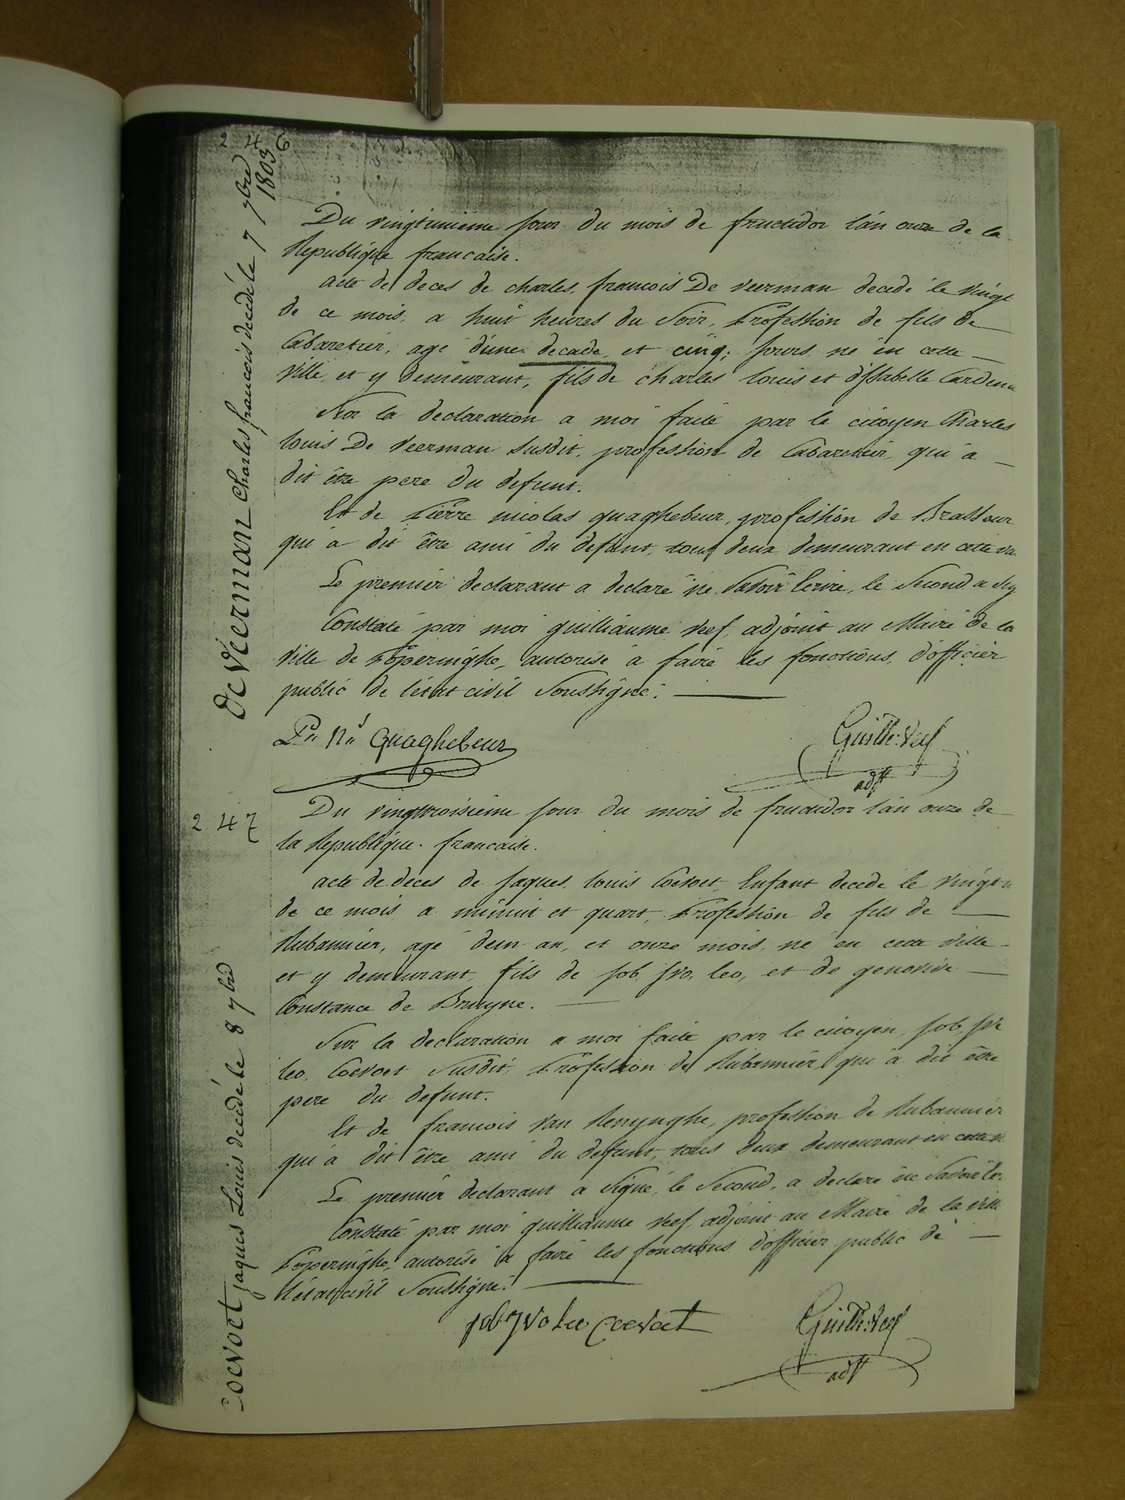 246
De Veerman Charles francois decedé le 7 7bre 1803
Du vingtunieme jour du mois de fructidor l'an onze de la
Republique francaise.
acte de deces de charles francois De veerman decedé le vingt
de ce mois, a huit heures du Soir, Profession de fils de
Cabaretier, agé d'une decade et cinq jours né en cette
ville, et y demeurant, fils de charles louis et d'Isabelle Cardoen
Sur la declaration a moi faite par le citoyen Charles
louis De veerman susdit, profession de Cabaretier qui a
dit être pere du defunt.
Et de Pierre nicolas quaghebeur, profession de Brasseur
qui a dit être ami du defunt, tous deux demeurant en cette
Le premier declarant a declaré ne Savoir Ecrire, le Second a Sig
Constaté par moi guilliaume Neef adjoint au Maire de la
Ville de Poperinghe, autorisé a faire les fonctions d'officier
public de l'etat civil Soussigné.
Pre Ns Quaghebeur
Guille: Neef
adjt
247
Coevoet jaques Louis decedé le 8 7bre
Du vingttroisieme jour du mois de fructidor l'an onze de
la Republique francaise.
acte de deces de jaques louis Coevoet Enfant decedé le vingt
de ce mois a minuit et quart, Profession de fils de
Rubannier, agé d'eun an, et onze mois, né en cette ville
et y demeurant fils de job ivo leo, et de genovive
Constance de Bruyne.
Sur la declaration a moi faite par le citoyen job ivo
leo Coevoet Susdit, Profession de Rubannier qui a dit être
pere du defunt.
Et de francois van Renynghe, profession de Rubannier
qui a dit être ami du defunt, tous deux demeurant en cette
Le premier declarant a Signé, le Second, a declaré ne Savoir
Constaté par moi guilliaume Neef adjoint au Maire de la ville
Poperinghe, autorisé a faire les fonctions d'officier public de
l'etat civil Soussigné.
job ivo Leo Coevoet
Guille: Neef
adjt